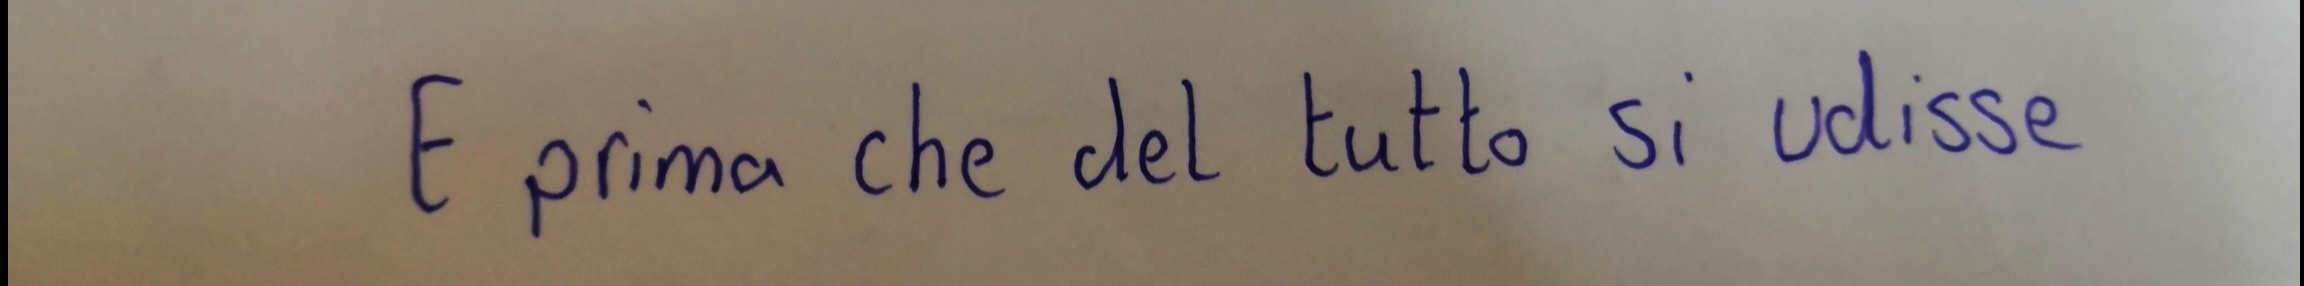 E prima che del tutto si udisse